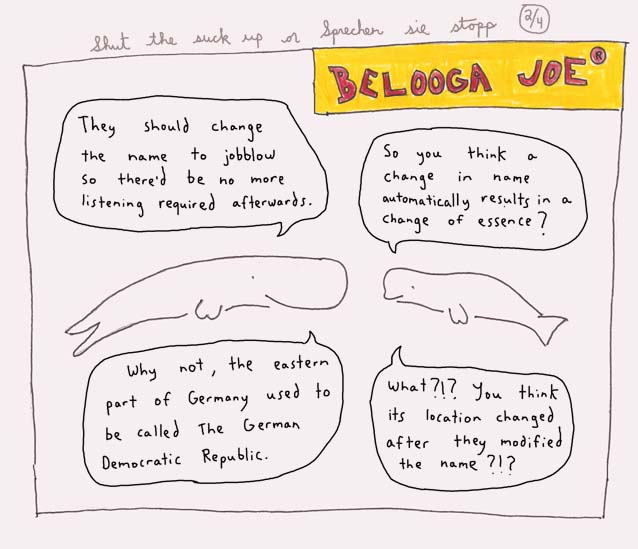 Shut the suck up or Sprechen sie stopp 2/4
BELOOGA JOE®
They should change
the name to jobblow
so there'd be no more
listening required afterwards.
So you think a
change in name
automatically results in a
change of essence?
Why not, the eastern
part of Germany used to
be called The German
Democratic Republic.
What?!? You think
its location changed
after they modified
the name?!?